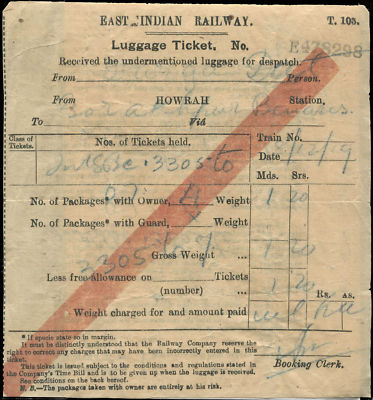 EAST INDIAN RAILWAY. T. 105.
Luggage Ticket, No. E478298
Received the undermentioned luggage for despatch.
From Person.
From HOWRAH Station,
To Viâ Benares
Class of Tickets. Nos. of Tickets held. Train No.
Inter 3305 to Date /12/19
Mds. Srs.
No. of Packages* with Owner, 4 Weight 1 20
No. of Packages* with Guard, Weight
Gross Weight ... 1 20
3305
Less free allowance on Tickets 1 20
(number) ... Rs. As.
Weight charged for and amount paid
* If specie state so in margin.
It must be distinctly understood that the Railway Company reserve the
right to correct any charges that may have been incorrectly entered in this
ticket.
This ticket is issued subject to the conditions and regulations stated in
the Company's Time Bill and is to be given up when the luggage is received.
See conditions on the back hereof.
N. B.—The packages taken with owner are entirely at his risk.
Booking Clerk.